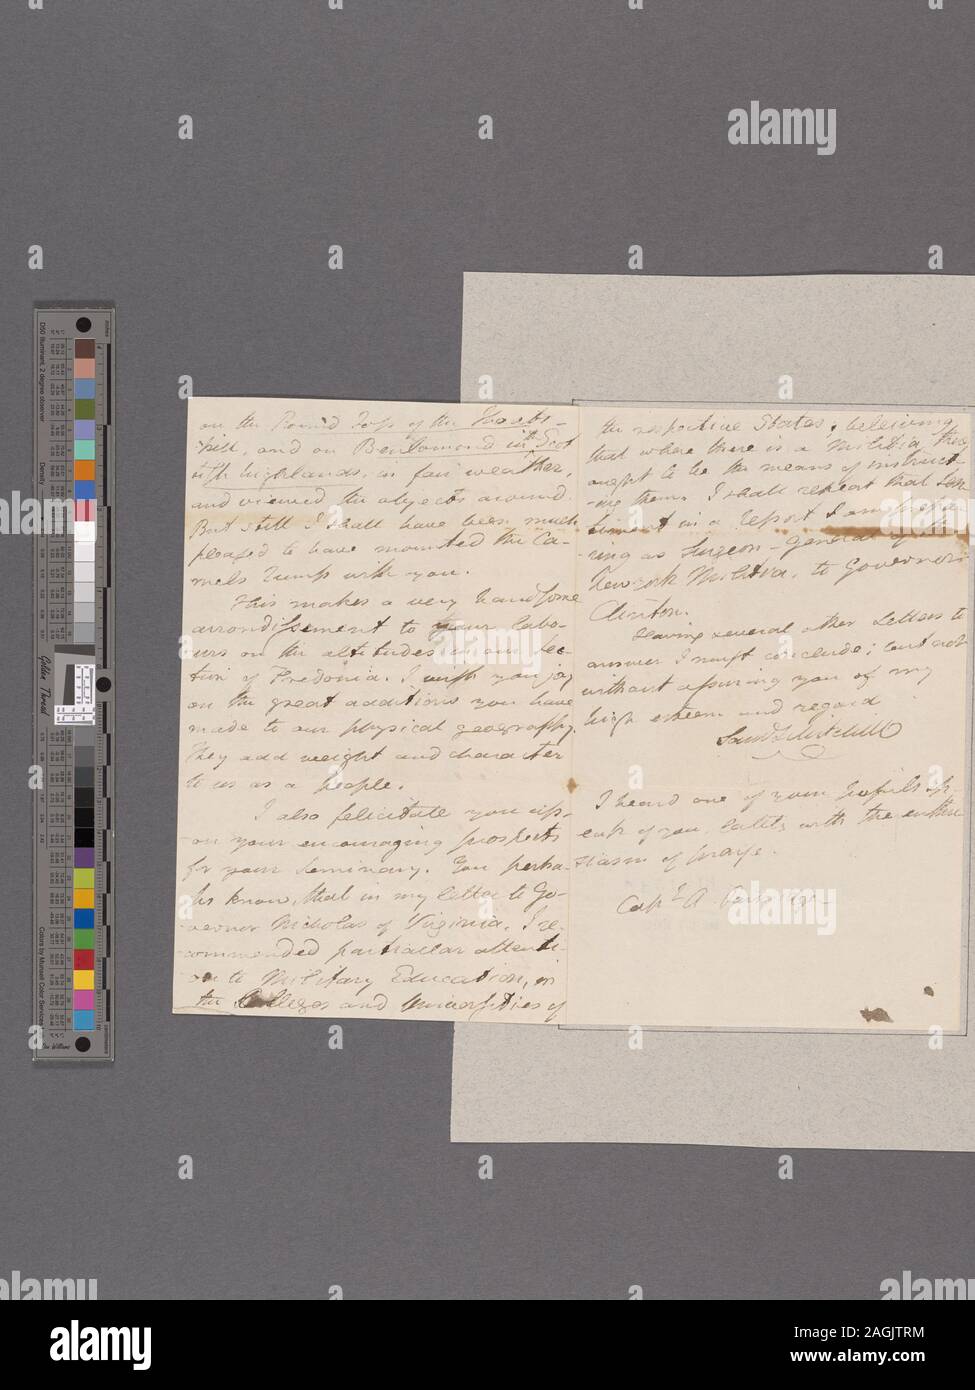 on the Round Top of the Kaats-
kill, and on Benlomond in the Scot
tish highlands, in fair weather,
and viewed the objects around.
But still I shall have been much
pleased to have mounted the Ca-
mels Rump with you.
This makes a very handsome
arrondissement to your labo-
urs on the altitudes in our sec-
tion of Fredonia. I wish you joy
on the great additions you have
made to our physical geography.
They add weight and character
to us as a people.
I also felicitate you up-
on your encouraging prospects
for your Seminary. You perha-
ps know, that in my letter to Go-
vernor Nicholas of Virginia, I re-
commended particular attenti-
on to Military Education, in
the Colleges and Universities of
the respective States, believing
that where there is a Militia, there
ought to be the means of instruct-
ing them. I shall repeat that Sen
timent in a Report I am prepa-
ring as Surgeon-general of the
New York Militia, to Governor
Clinton.
Having several other Letters to
answer I must conclude; but not
without assuring you of my
high esteem and regard
Saml L Mitchill
I heard one of your pupils sp
eak of you lately with the enthu
siasm of praise.
Capt. A. Partridge
alamy
a
Image ID: 2AGJTRM
www.alamy.com
D50 Illuminant, 2 degree observer
Density
Golden Thread
Colors by Munsell Color Services